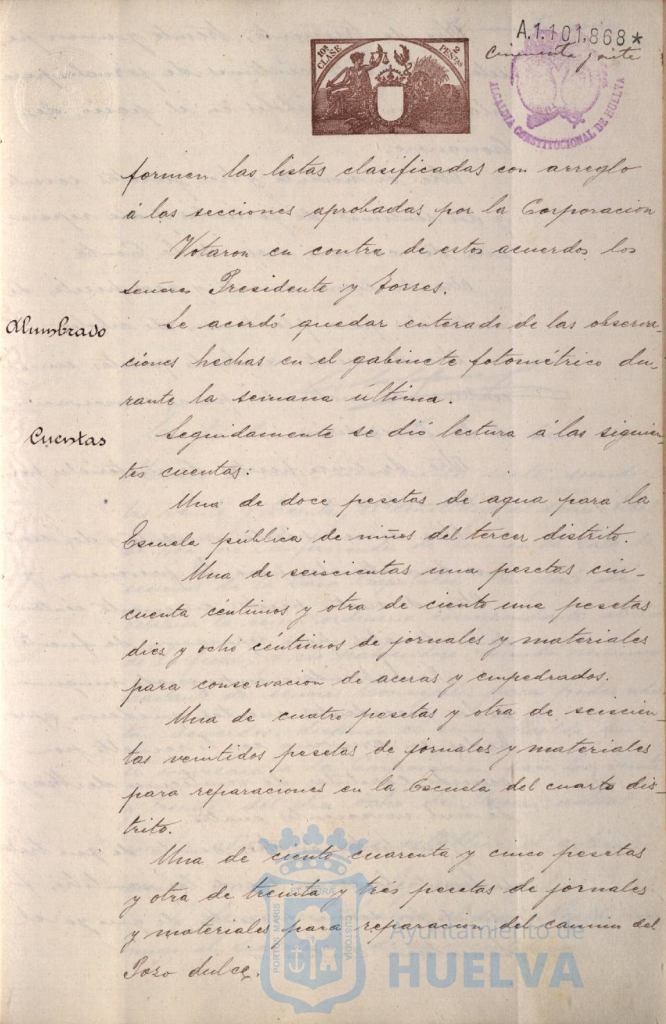 10ª CLASE
2 PESTAS
A.1.101.868*
cincuenta y siete
ALCALDIA CONSTITUCIONAL DE HUELVA
formen las listas clasificadas con arreglo
á las secciones aprobadas por la Corporacion
Votaron en contra de estos acuerdos los
señores Presidente y Torres.
Alumbrado
Se acordó quedar enterado de las observa-
ciones hechas en el gabinete fotométrico du-
rante la semana última.
Cuentas
Seguidamente se dió lectura á las siguien-
tes cuentas:
Una de doce pesetas de agua para la
Escuela pública de niños del tercer distrito.
Una de seiscientas una pesetas cin-
cuenta céntimos y otra de ciento una pesetas
diez y ocho céntimos de jornales y materiales
para conservacion de aceras y empedrados.
Una de cuatro pesetas y otra de seiscien-
tas veintidos pesetas de jornales y materiales
para reparaciones en la Escuela del cuarto dis-
trito.
Una de ciento cuarenta y cinco pesetas
y otra de treinta y tres pesetas de jornales
y materiales para reparacion del camino del
Pozo dulce.
PORTUS MARIS ET TERRÆ CUSTODIA
Ayuntamiento de
HUELVA